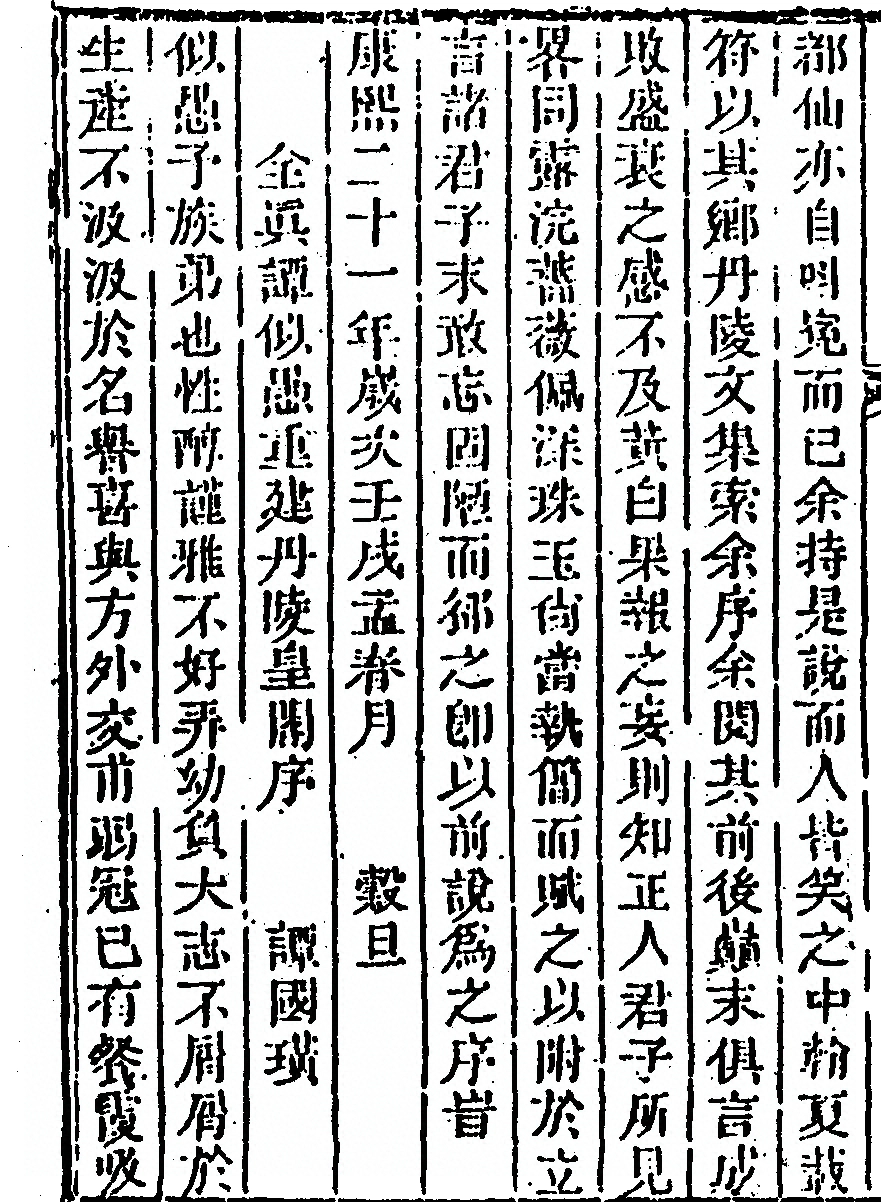 都仙亦自叫寃而已余持是說而人皆笑之中翰夏裁
符以其鄉丹陵文集索余序余閱其前後巔末俱言成
敗盛衰之感不及黃白果報之妄則知正人君子所見
畧同露浣薔薇佩深珠玉尙當執簡而賦之以附於立
言諸君子末敢忘固陋而郤之卽以前說爲之序旹
康熙二十一年歲次壬戌孟春月　　穀旦
全眞譚似愚重建丹陵皇閣序　　譚國璜
似愚予族弟也性醇謹雅不好弄幼負大志不屑屑於
生產不汲汲於名譽喜與方外交甫弱冠已有餐霞吸